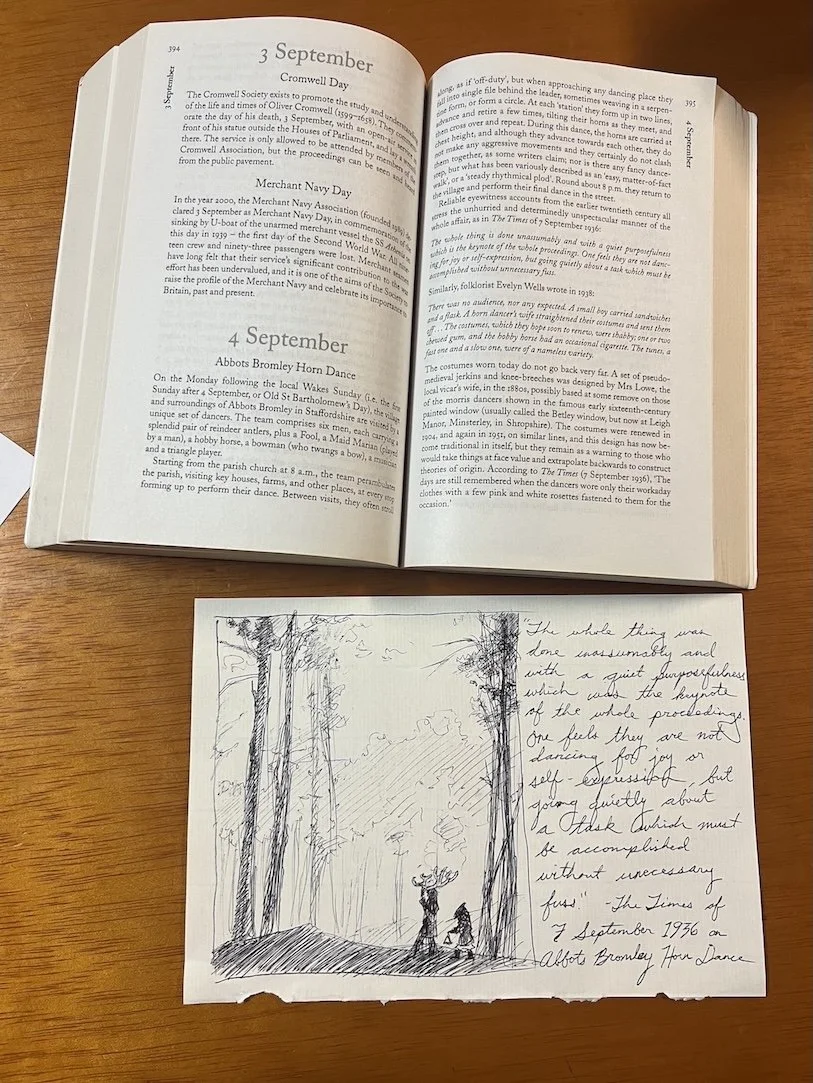 394
3 September
3 September
Cromwell Day
The Cromwell Society exists to promote the study and understanding
of the life and times of Oliver Cromwell (1599–1658). They commem-
orate the day of his death, 3 September, with an open-air service in
front of his statue outside the Houses of Parliament, and lay a wreath
there. The service is only allowed to be attended by members of the
Cromwell Association, but the proceedings can be seen and heard
from the public pavement.
Merchant Navy Day
In the year 2000, the Merchant Navy Association (founded 1989) de-
clared 3 September as Merchant Navy Day, in commemoration of the
sinking by U-boat of the unarmed merchant vessel the SS Athenia on
this day in 1939 – the first day of the Second World War. All
teen crew and ninety-three passengers were lost. Merchant seamen
have long felt that their service's significant contribution to the war
effort has been undervalued, and it is one of the aims of the Society to
raise the profile of the Merchant Navy and celebrate its importance to
Britain, past and present.
4 September
Abbots Bromley Horn Dance
On the Monday following the local Wakes Sunday (i.e. the first
Sunday after 4 September, or Old St Bartholomew's Day), the village
and surroundings of Abbots Bromley in Staffordshire are visited by a
unique set of dancers. The team comprises six men, each carrying a
splendid pair of reindeer antlers, plus a Fool, a Maid Marian (played
by a man), a hobby horse, a bowman (who twangs a bow), a musician
and a triangle player.
Starting from the parish church at 8 a.m., the team perambulates
the parish, visiting key houses, farms, and other places, at every stop
forming up to perform their dance. Between visits, they often stroll
395
4 September
along, as if 'off-duty', but when approaching any dancing place they
fall into single file behind the leader, sometimes weaving in a serpen-
tine form, or form a circle. At each 'station' they form up in two lines,
advance and retire a few times, tilting their horns as they meet, and
then cross over and repeat. During this dance, the horns are carried at
chest height, and although they advance towards each other, they do
not make any aggressive movements and they certainly do not clash
them together, as some writers claim; nor is there any fancy dance-
step, but what has been variously described as an 'easy, matter-of-fact
walk', or a 'steady rhythmical plod'. Round about 8 p.m. they return to
the village and perform their final dance in the street.
Reliable eyewitness accounts from the earlier twentieth century all
stress the unhurried and determinedly unspectacular manner of the
whole affair, as in The Times of 7 September 1936:
The whole thing is done unassumably and with a quiet purposefulness
which is the keynote of the whole proceedings. One feels they are not danc-
ing for joy or self-expression, but going quietly about a task which must be
accomplished without unnecessary fuss.
Similarly, folklorist Evelyn Wells wrote in 1938:
There was no audience, nor any expected. A small boy carried sandwiches
and a flask. A horn dancer's wife straightened their costumes and sent them
off . . . The costumes, which they hope soon to renew, were shabby; one or two
chewed gum, and the hobby horse had an occasional cigarette. The tunes, a
fast one and a slow one, were of a nameless variety.
The costumes worn today do not go back very far. A set of pseudo-
medieval jerkins and knee-breeches was designed by Mrs Lowe, the
local vicar's wife, in the 1880s, possibly based at some remove on those
of the morris dancers shown in the famous early sixteenth-century
painted window (usually called the Betley window, but now at Leigh
Manor, Minsterley, in Shropshire). The costumes were renewed in
1904, and again in 1951, on similar lines, and this design has now be-
come traditional in itself, but they remain as a warning to those who
would take things at face value and extrapolate backwards to construct
theories of origin. According to The Times (7 September 1936), 'The
days are still remembered when the dancers wore only their workaday
clothes with a few pink and white rosettes fastened to them for the
occasion.'
"The whole thing was
done unassumably and
with a quiet purposefulness
which was the keynote
of the whole proceedings.
One feels they are not
dancing for joy or
self-expression, but
going quietly about
a task which must
be accomplished
without unecessary
fuss." -The Times of
7 September 1936 on
Abbots Bromley Horn Dance